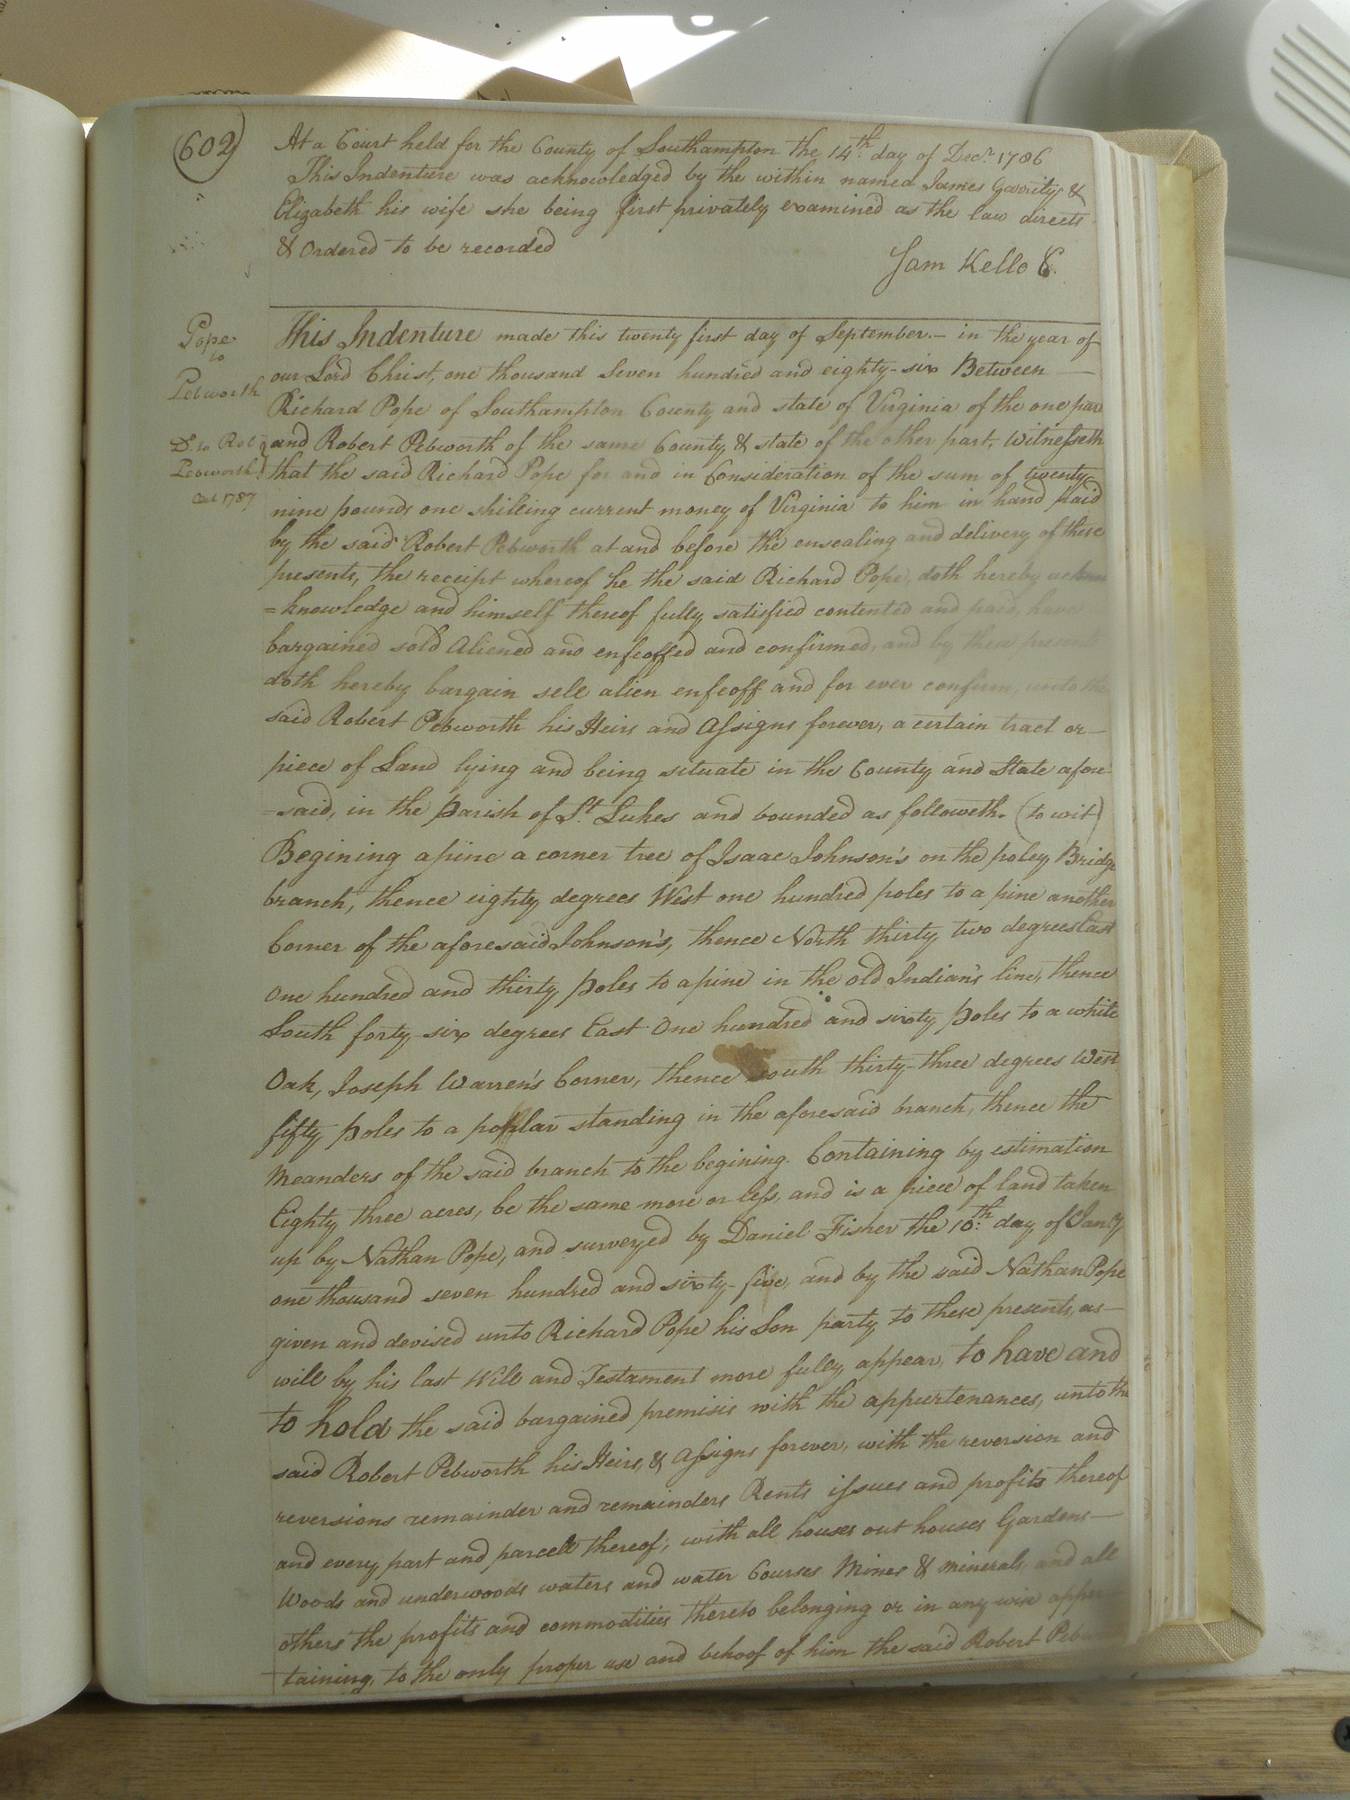 (602)
At a Court held for the County of Southampton the 14th day of Decr. 1786
This Indenture was acknowledged by the within named James Gavrity &
Elizabeth his wife she being first privately examined as the law directs
& Ordered to be recorded
Sam Kello C.
Pope
to
Pebworth
D. to Rob
Pebworth
Oct 1787
This Indenture made this twenty first day of September.— in the year of
our Lord Christ, one thousand Seven hundred and eighty-six Between —
Richard Pope of Southampton County and state of Virginia of the one part
and Robert Pebworth of the same County & state of the other part, Witnesseth
that the said Richard Pope for and in Consideration of the sum of twenty
nine pounds one shilling current money of Virginia to him in hand paid
by the said Robert Pebworth at and before the ensealing and delivery of these
presents, the receipt whereof he the said Richard Pope, doth hereby
=knowledge and himself thereof fully satisfied contented and paid, have
bargained sold aliened and enfeoffed and confirmed, and by these presents
doth hereby bargain sell alien enfeoff and for ever confirm, unto the
said Robert Pebworth his Heirs and Assigns forever, a certain tract or—
piece of Land lying and being situate in the County and State afore
=said, in the Parish of St. Lukes and bounded as followeth. (to wit)
Begining a pine a corner tree of Isaac Johnson's on the poley Bridge
branch, thence eighty degrees West one hundred poles to a pine another
Corner of the aforesaid Johnson's, thence North thirty two degrees East
One hundred and thirty poles to a pine in the old Indian's line, thence
South forty-six degrees East One hundred and sixty poles to a white
Oak, Joseph Warren's Corner, thence South thirty-three degrees West
fifty poles to a poplar standing in the aforesaid branch, thence the
Meanders of the said branch to the begining. Containing by estimation
Eighty three acres, be the same more or less, and is a piece of land taken
up by Nathan Pope, and surveyed by Daniel Fisher the 10th day of Jany
one thousand seven hundred and sixty-five, and by the said Nathan Pope
given and devised unto Richard Pope his Son party to these presents, as—
will by his last Will and Testament more fully appear, to have and
to hold the said bargained premisis with the appurtenances, unto the
said Robert Pebworth his Heirs, & Assigns forever, with the reversion and
reversions remainder and remainders Rents issues and profits thereof
and every part and parcell thereof, with all houses out houses Gardens—
Woods and underwoods waters and water Courses Mines & minerals and all
others the profits and commodities thereto belonging or in any wise apper
taining, to the only proper use and behoof of him the said Robert